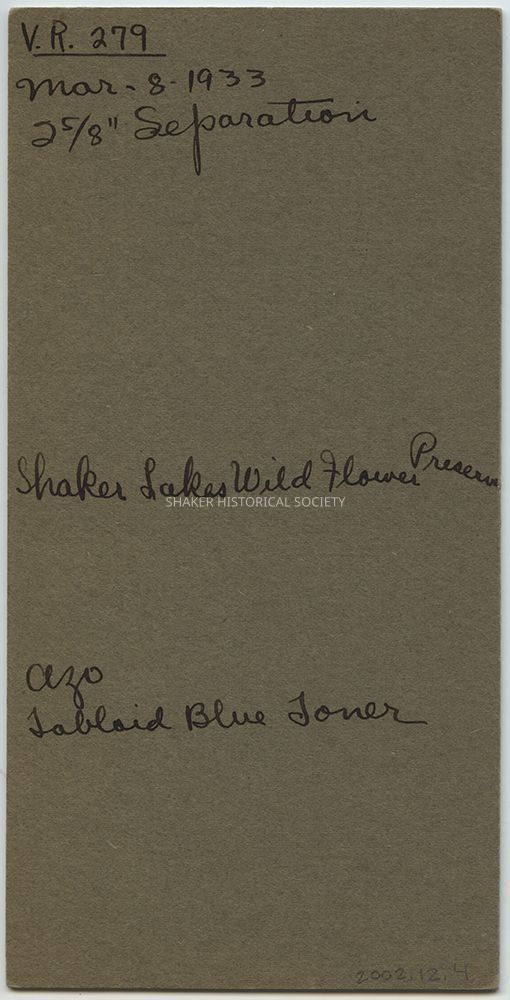 V.R. 279
Mar-8-1933
2 5/8" Separation
Shaker Lakes Wild Flower Preserv
SHAKER HISTORICAL SOCIETY
Azo
Tabloid Blue Toner
2002.12.4